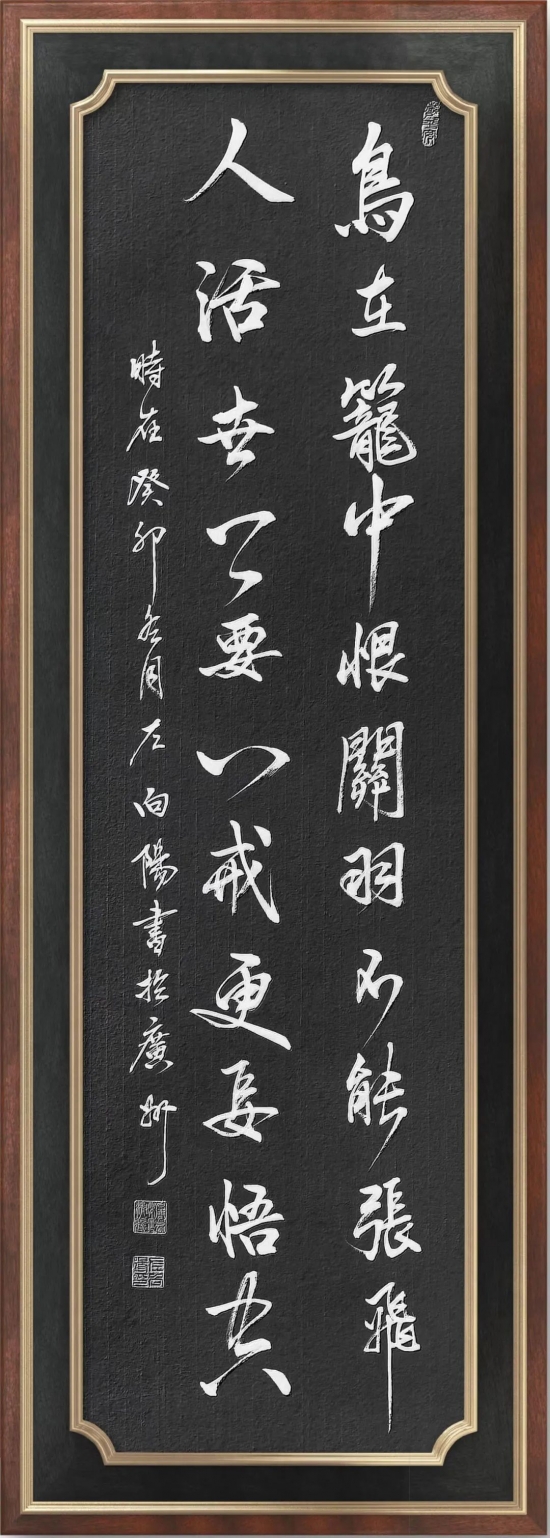 鳥在籠中恨關羽不能張飛
人活世上要八戒更要悟空
時在癸卯冬月左向陽書於廣州